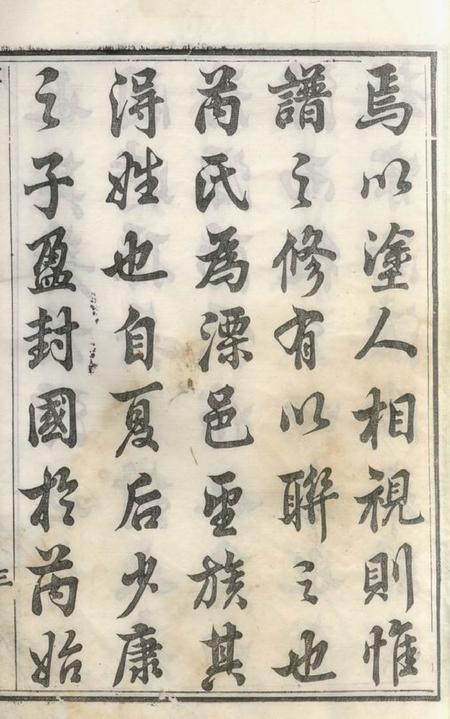 焉以塗人相視則惟
譜之修有以聯之也
芮氏為溧邑望族其
得姓也自夏后少康
之子盈封國於芮始
三